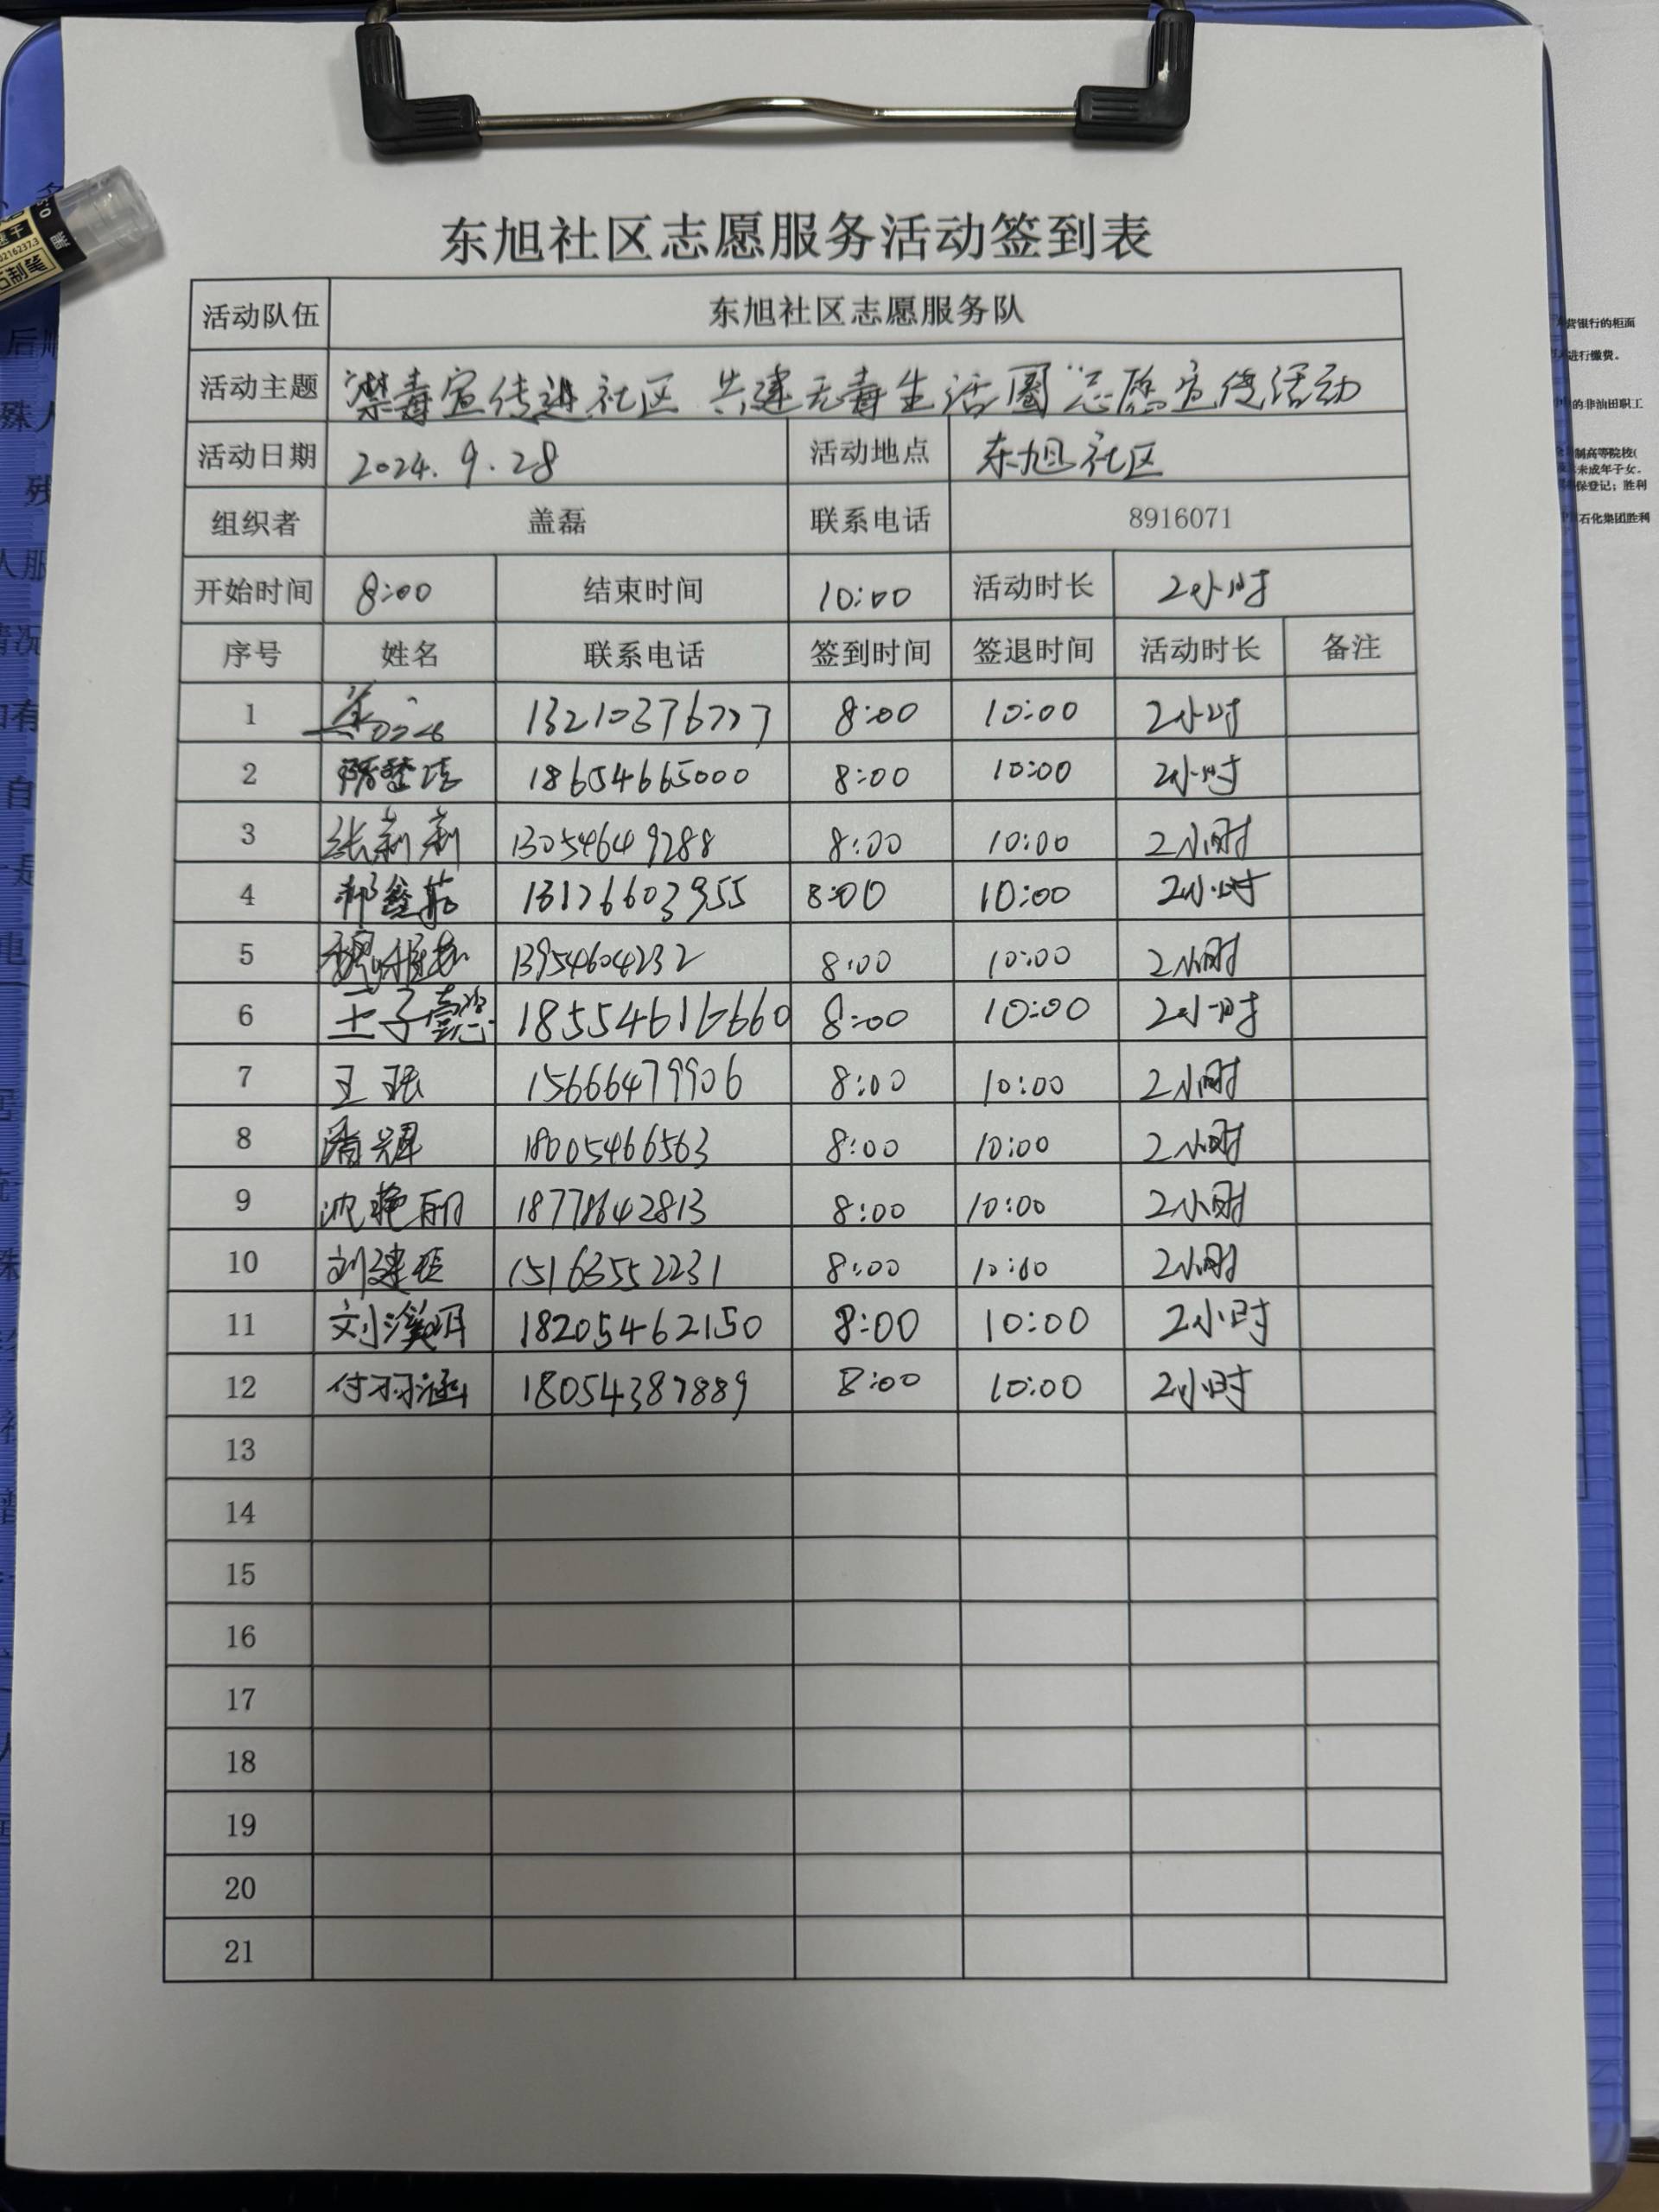 东旭社区志愿服务活动签到表
活动队伍 东旭社区志愿服务队
活动主题 "禁毒宣传进社区 共建无毒生活圈"志愿宣传活动
活动日期 2024.9.28 活动地点 东旭社区
组织者 盖磊 联系电话 8916071
开始时间 8:00 结束时间 10:00 活动时长 2小时
序号 姓名 联系电话 签到时间 签退时间 活动时长 备注
1 盖磊 13210376777 8:00 10:00 2小时
2 18654665000 8:00 10:00 2小时
3 张莉莉 13054649288 8:00 10:00 2小时
4 13176603955 8:00 10:00 2小时
5 13954604232 8:00 10:00 2小时
6 王子懿 18554616660 8:00 10:00 2小时
7 王珉 15666479906 8:00 10:00 2小时
8 潘辉 18005466563 8:00 10:00 2小时
9 沈艳丽 8:00 10:00 2小时
10 刘建 15163552231 8:00 10:00 2小时
11 刘溪玥 18205462150 8:00 10:00 2小时
12 付羽涵 18054387889 8:00 10:00 2小时
13
14
15
16
17
18
19
20
21
营银行的柜面
进行缴费。
的非油田职工
制高等院校(
未成年子女。
保登记；胜利
石化集团胜利